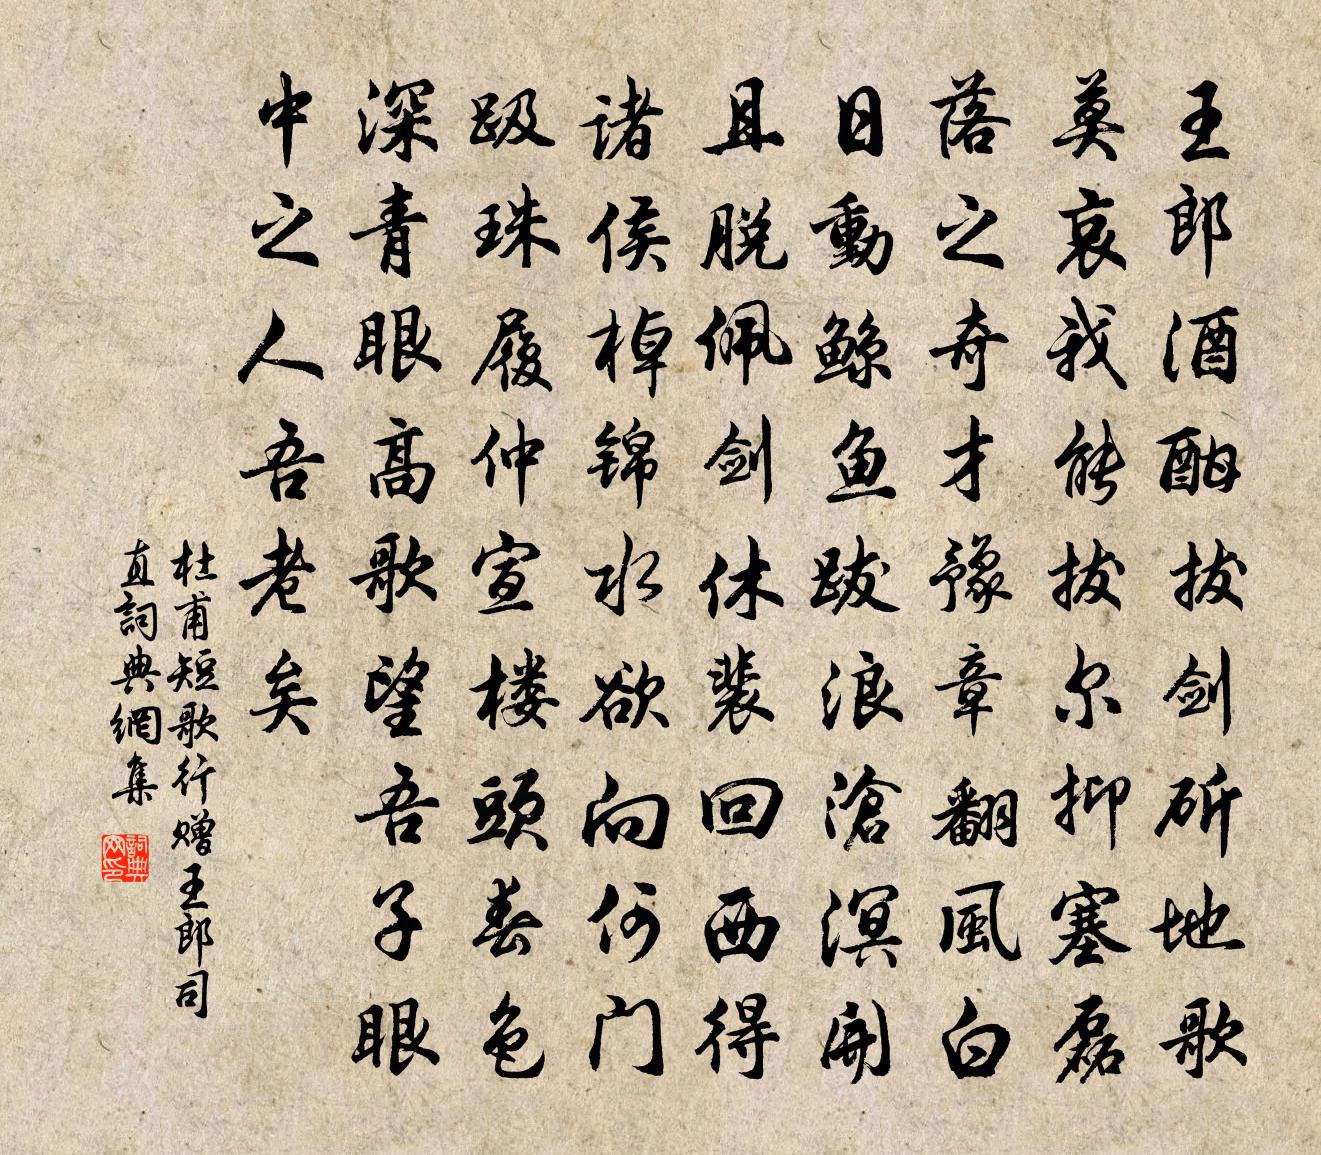 王郎酒酣拔剑斫地歌
莫哀我能拔尔抑塞磊
落之奇才豫章翻風白
日動鲸鱼跋浪滄溟開
且脱佩剑休裴回西得
诸侯棹锦水欲向何门
趿珠履仲宣楼頭春色
深青眼高歌望吾子眼
中之人吾老矣
杜甫短歌行赠王郎司
直詞典網集
詞典网印